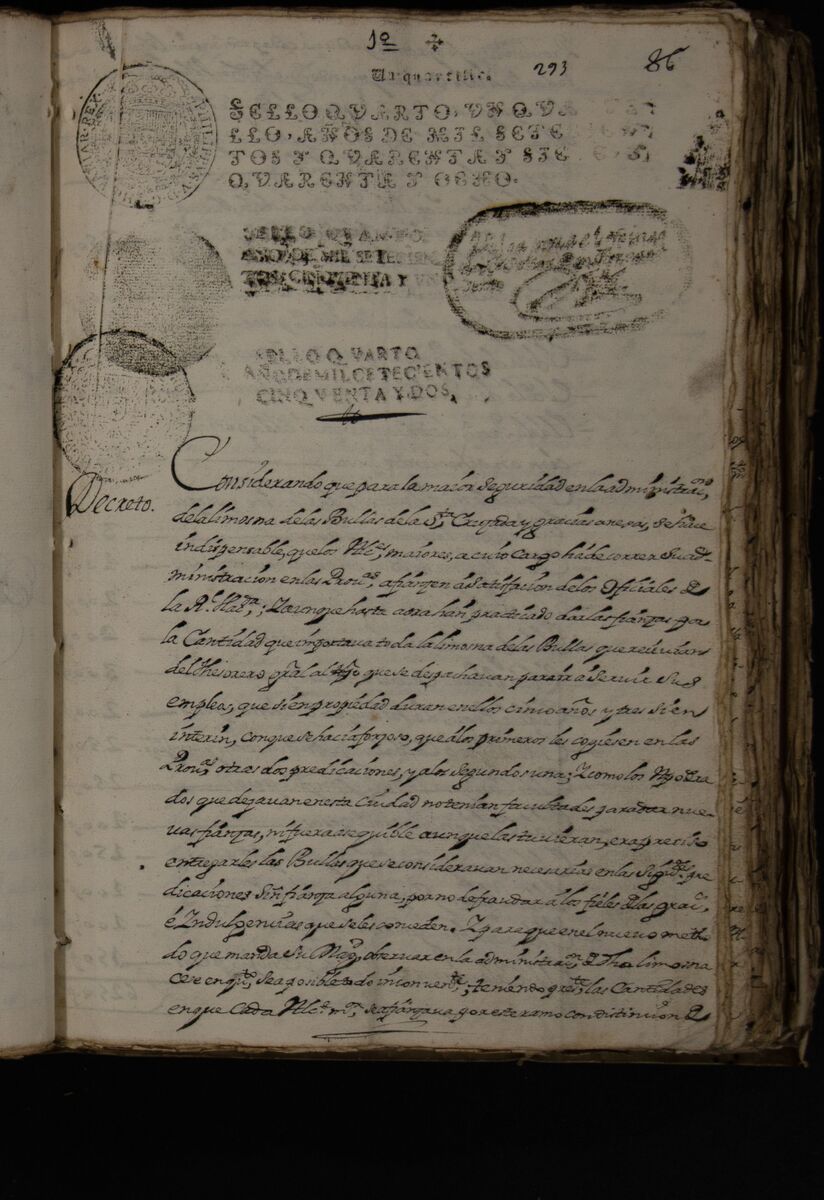 1º ✠
Un quartillo.
293
86
SELLO QVARTO, VN QVA
LLO, AÑOS DE MIL SETE
TOS Y QVARENTA Y SIE
QVARENTA Y OCHO.
PHILIPPVS V D
INDIAR REX
SELLO QVARTO
AÑO DE MIL SETECIEN
TOS CINQVENTA Y VN
SELLO QVARTO
AÑO DE MIL CETECIENTOS
CINQVENTA Y DOS,
Decreto.
Considerando que para la maior Seguridad en la administrac.on
de la limosna de las Bullas de la S.ta Cruzada y gracias anexas, se hace
indispensable, que los Alc.s maiores, a cuio cargo há de correr Su ad-
ministracion en las Prov.s afianzen á Satisfacion de los Oficiales R.s
la R.l Haz.da; Y aunque hasta aora han practicado dar las fianzas por
la Cantidad que importava toda la limosna de las Bullas que recivian
del Thesorero gral al tpo que se despachavan para ir á Servir Sus
empleos, que si en propiedad duran en ellos cinco años y tres si en
interin, con que se hacia forzoso, que á los primeros les cogiesen en las
Prov.s otras dos predicaciones, y a los segundos una; Y como los Apodera
dos que dejavan en esta Ciudad no tenian facultades para dar nue-
vas fianzas, ni fuera asequible aunque las tuvieran, era preciso
entregarles las Bullas que se consideravan necesarias en las Sig.tes pre
dicaciones Sin fianza alguna, por no defraudar á los fieles de las grac.s
é Indulgencias que se les conceden. Y para que en el nuevo metho
do que manda Su Mag.d observar en la administra.on de dha limosna
cese en q.to sea posible todo inconven.te; teniendo pres.tes las Cantidades
en que Cada Alc.e m.or se afianzava por este ramo con distincion de